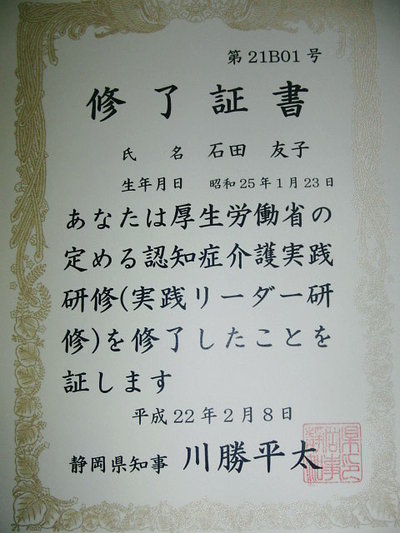 第21B01号
修了証書
氏 名 石田 友子
生年月日 昭和25年1月23日
あなたは厚生労働省の
定める認知症介護実践
研修(実践リーダー研
修)を修了したことを
証します
平成22年2月8日
静岡県知事 川勝平太